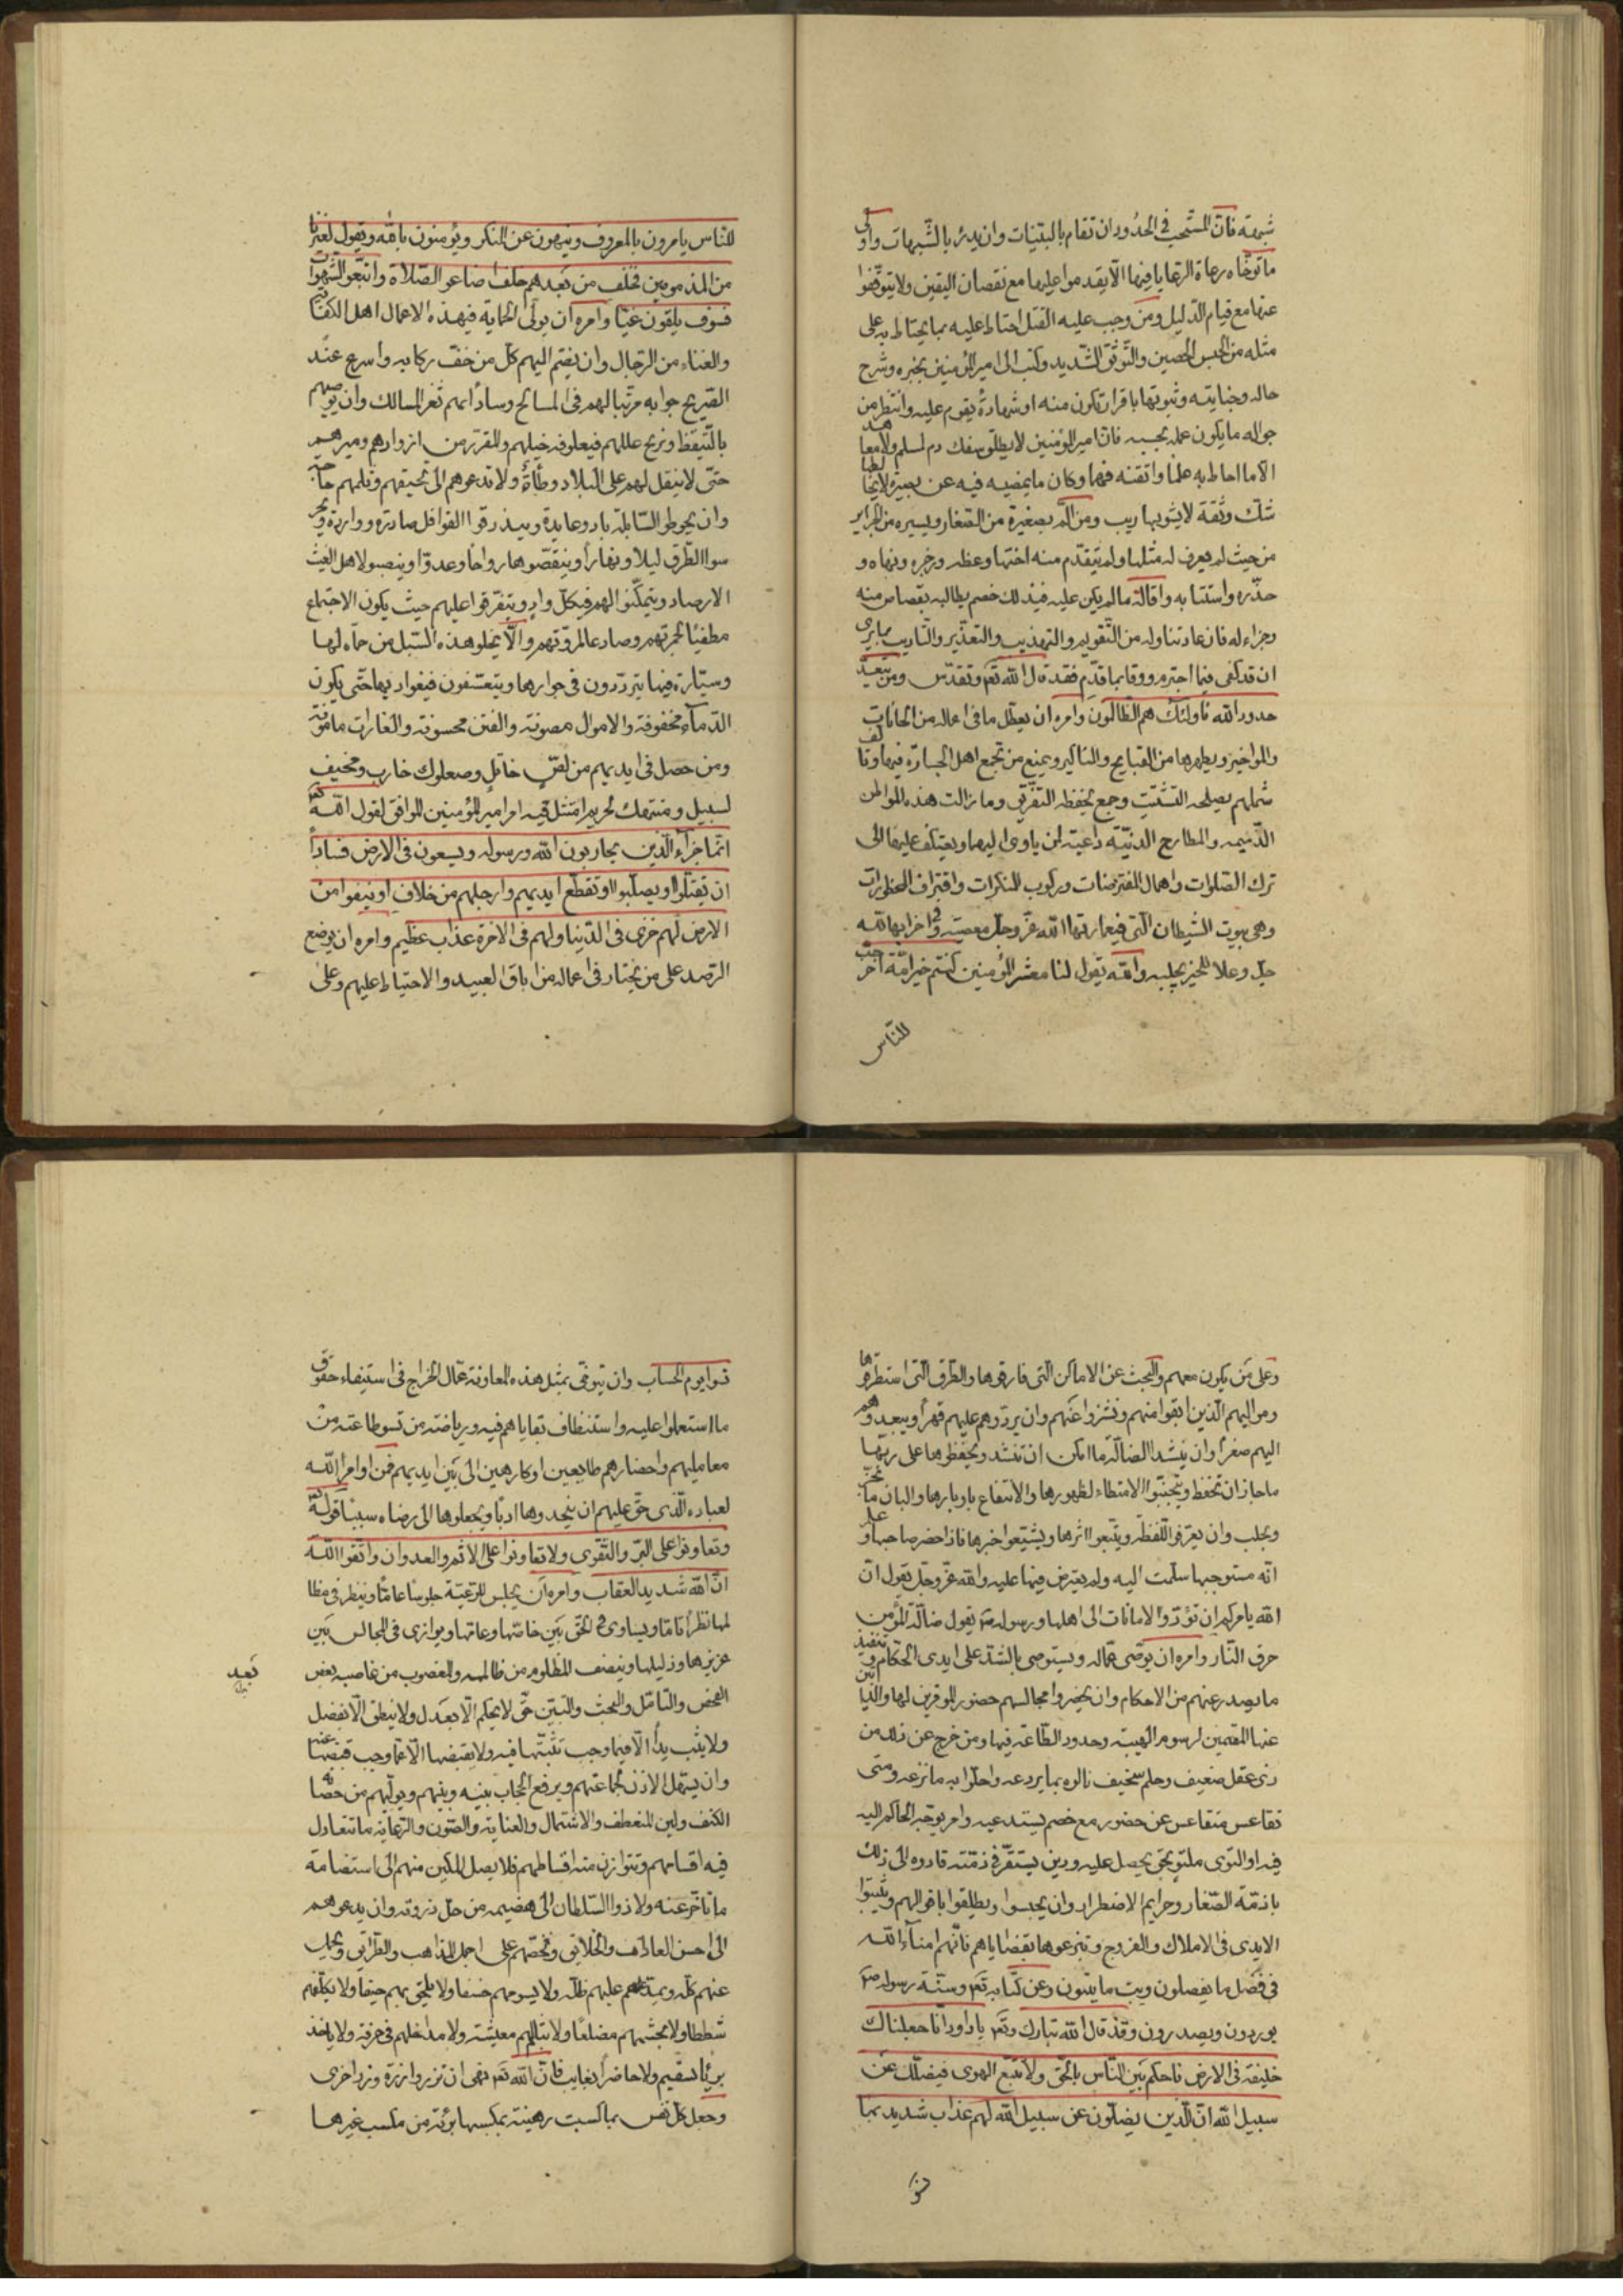 شبهته فان المستحب في الحدود ان تقام بالبينات وان يدرئ بالشبهات واولى
ما توخاه رعاة الرعايا فيها الا يقدموا عليها مع نقصان اليقين ولا يتوقفوا
عنها مع قيام الدليل ومن وجب عليه القتل احتاط عليه بما يحتاط به على
مثله من الحبس الحصين والتوثق الشديد وكتب الى امير المؤمنين بخبره وشرح
حاله وجنايته وثبوتها باقرار تكون منه او شهادة يقوم عليه وانتظر من
جوابه ما يكون عمله بحسبه فان امير المؤمنين لا يطلق سفك دم لمسلم ولا معاهد
الا ما احاط به علما واتقنه فهما وكان ما يمضيه فيه عن بصيرة لا يخالطها
شك وثقة لا يشوبها ريب ومن الم بصغيرة من الصغار ويسيره من الجراير
من حيث لم يعرف له مثلها ولم يتقدم منه اختها وعظه وزجره ونهاه و
حذره واستتابه واقاله ما لم يكن عليه في ذلك خصم يطالبه بقصاص منه
وجزاء له فان عاد تناوله من التقويم والتهذيب والتعذير والتاديب بما يرى
ان قد كفى فيما اجترم ووفا بما قدم فقد قال الله تعم وتقدس ومن يتعد
حدود الله فاولئك هم الظالمون وامره ان يعطل ما في اعماله من الحانات
والمواخير ويطهرها من القبايح والمناكير ويمنع من تجمع اهل الخسارة فيها وتالف
شملهم يصلحه التشتيت وجمع يحفظه التفرق وما زالت هذه المواطن
الذميمه والمطارح الدنيئة داعية لمن ياوى اليها ويعتكف عليها الى
ترك الصلوات واهمال المفترضات وركوب المنكرات واقتراف المحظورات
وهي بيوت الشيطان التي في عمارتها الله عز وجل معصية وفي اخرابها لله
جل وعلا للخير مجلبه والله يقول لنا معشر المؤمنين كنتم خير امة اخرجت
للناس
للناس يامرون بالمعروف وينهون عن المنكر ويؤمنون بالله ويقول لغيرنا
من المذمومين فخلف من بعدهم خلف اضاعو الصلاة واتبعوا الشهوات
فسوف يلقون غيا وامره ان يولى الحماية في هذه الاعمال اهل الكفاية
والغناء من الرجال وان يضم اليهم كل من خف ركابه واسرع عند
الصريخ جوابه مرتبا لهم في المسالح وسادا بهم ثغر المسالك وان يوصيهم
بالتيقظ ونريح عللهم في علوفه خيلهم والمقرر من ازوادهم وميرهم
حتى لا تثقل لهم على البلاد وطأة ولا تدعوهم الى تحيفهم وثلمهم حاجة
وان يحوطوا السابلة بادء وعايدة ويبذرقوا القوافل صادرة وواردة ويحر
سوا الطرق ليلا ونهارا ويتقصوها رواحا وعدوا وينصبوا لاهل العيث
الارصاد ويتمكنوا لهم في كل واد ويتفرقوا عليهم حيث يكون الاجتماع
مطفيا لجمرتهم وصادعا لمروتهم والا يخلو هذه السبل من حماه لها
وسيارة فيها يترددون في جوارها ويتعسفون في غواديها حتى يكون
الدماء محقونة والاموال مصونة والفتن محسومة والغارات مامونة
ومن حصل في ايديهم من لص خاتل وصعلوك خارب ومخيف
لسبيل ومنتهك لحريم امتثل فيه امر امير المؤمنين الموافق لقول الله تعم
انما جزاء الذين يحاربون الله ورسوله ويسعون في الارض فسادا
ان يقتلوا او يصلبوا او تقطع ايديهم وارجلهم من خلاف او ينفوا من
الارض لهم خزى في الدنيا ولهم في الاخرة عذاب عظيم وامره ان يوضع
الرصد على من يجتاز في اعماله من اباق العبيد والاحتياط عليهم وعلى
وعلى من يكون معهم والبحث عن الاماكن التي فارقوها والطرق التي استطرقوها
ومواليهم الذين ابقوا منهم ونشزوا عنهم وان يردوهم عليهم قهرا ويعيدوهم
اليهم صغرا وان ينشدوا الضالة ما امكن ان تنشد ويحفظوها على ربها
ما جاز ان تحفظ ويتجنبوا الامتطاء لظهورها والانتفاع باوبارها والبان ما يجز
ويحلب وان يعرفوا اللقطة ويتبعوا اثرها ويشيعوا خبرها فاذا حضر صاحبها وعلم
انه مستوجبها سلمت اليه ولم يعترض فيها عليه والله عز وجل يقول ان
الله يامركم ان تؤدوا الامانات الى اهلها ورسوله صم يقول ضالة المؤمن
حرق النار وامره ان يوصى عماله ويستوصى بالشد على ايدى الحكام وتنفيذ
ما يصدر عنهم من الاحكام وان يحضروا مجالسهم حضور الموقرين لها والذابين
عنها المقيمين لرسوم الهيبة وحدود الطاعة فيها ومن خرج عن ذلك من
ذى عقل ضعيف وحلم سخيف نالوه بما يردعه واحلوا به ما نزعه ومتى
تقاعس متقاعس عن حضور مع خصم يستدعيه وامر يوجه الحاكم اليه
فيه او التوى ملتو بحق يحصل عليه ودين يستقر في ذمته قادوه الى ذلك
بازمة الصغار وخزايم الاضطرار وان يحبسوا ويطلقوا باقوالهم ويثبتوا
الايدى في الاملاك والفروج وينزعوها بقضاياهم فانهم امناء الله
في فصل ما يفصلون وبت ما يبتون وعن كتابه تعم وسنة رسوله صم
يوردون ويصدرون وقد قال الله تبارك وتعم يا داود انا جعلناك
خليفة في الارض فاحكم بين الناس بالحق ولا تتبع الهوى فيضلك عن
سبيل الله ان الذين يضلون عن سبيل الله لهم عذاب شديد بما
نسوا
نسوا يوم الحساب وان يتوخى بمثل هذه المعاونة عمال الخراج في استيفاء حقوق
ما استعملوا عليه واستنظاف بقاياهم فيه ورياضة من تسو طاعته من
معامليهم واحضارهم طائعين او كارهين الى بين ايديهم فمن اوامر الله
لعباده الذى حق عليهم ان يتخذوها ادبا ويجعلوها الى رضاه سببا قوله
وتعاونوا على البر والتقوى ولا تعاونوا على الاثم والعدوان واتقوا الله
ان الله شديد العقاب وامره ان يجلس للرعية جلوسا عاما وينظر في مظا
لمها نظرا تاما ويساوى في الحق بين خاصتها وعامتها ويوازى في المجالس بين
عزيزها وذليلها وينصف المظلوم من ظالمه والمغصوب من غاصبه بعض
بعد
الفحص والتامل والبحث والتبين حتى لا يحكم الا بعدل ولا ينطق الا بفصل
ولا يثبت يدا الا فيما وجب تثبتها فيه ولا يقبضها الا عما وجب قبضها عنه
وان يسهل الاذن لجماعتهم ويرفع الحجاب بينه وبينهم ويوليهم من حصانة
الكنف ولين المنعطف والاشتمال والعناية والصون والرعاية ما تتعادل
فيه اقسامهم وتتوازن منه اقساطهم فلا يصل المكين منهم الى استضامة
ما تاخر عنه ولا ذوا السلطان الى هضيمه من حل دونه وان يدعوهم
الى احسن العادات والخلائق ويحضهم على اجمل المذاهب والطرائق ويحمل
عنهم كله ويمد عليهم ظله ولا يسومهم خسفا ولا يلحق بهم حيفا ولا يكلفهم
شططا ولا يجشمهم مضلعا ولا يثلم لهم معيشة ولا مداخلهم في حرفة ولا ياخذ
بريئا بسقيم ولا حاضرا بغايب فان الله تعم نهى ان تزر وازرة وزر اخرى
وجعل كل نفس بما كسبت رهينة بمكسبها بريئة من مكسب غيرها